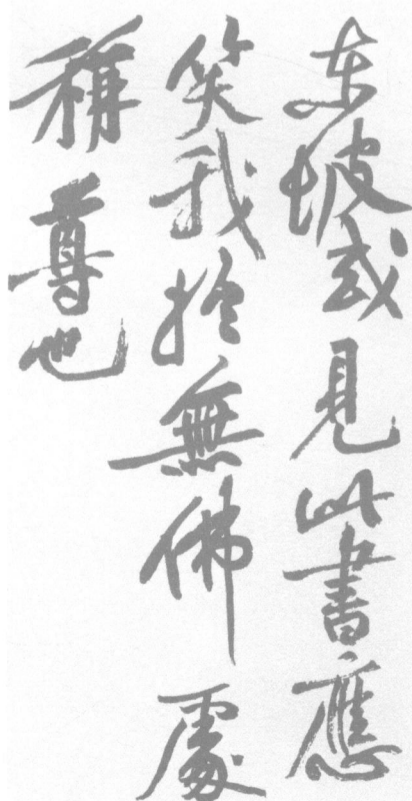 东坡或見此書應
笑我於無佛處
稱尊也